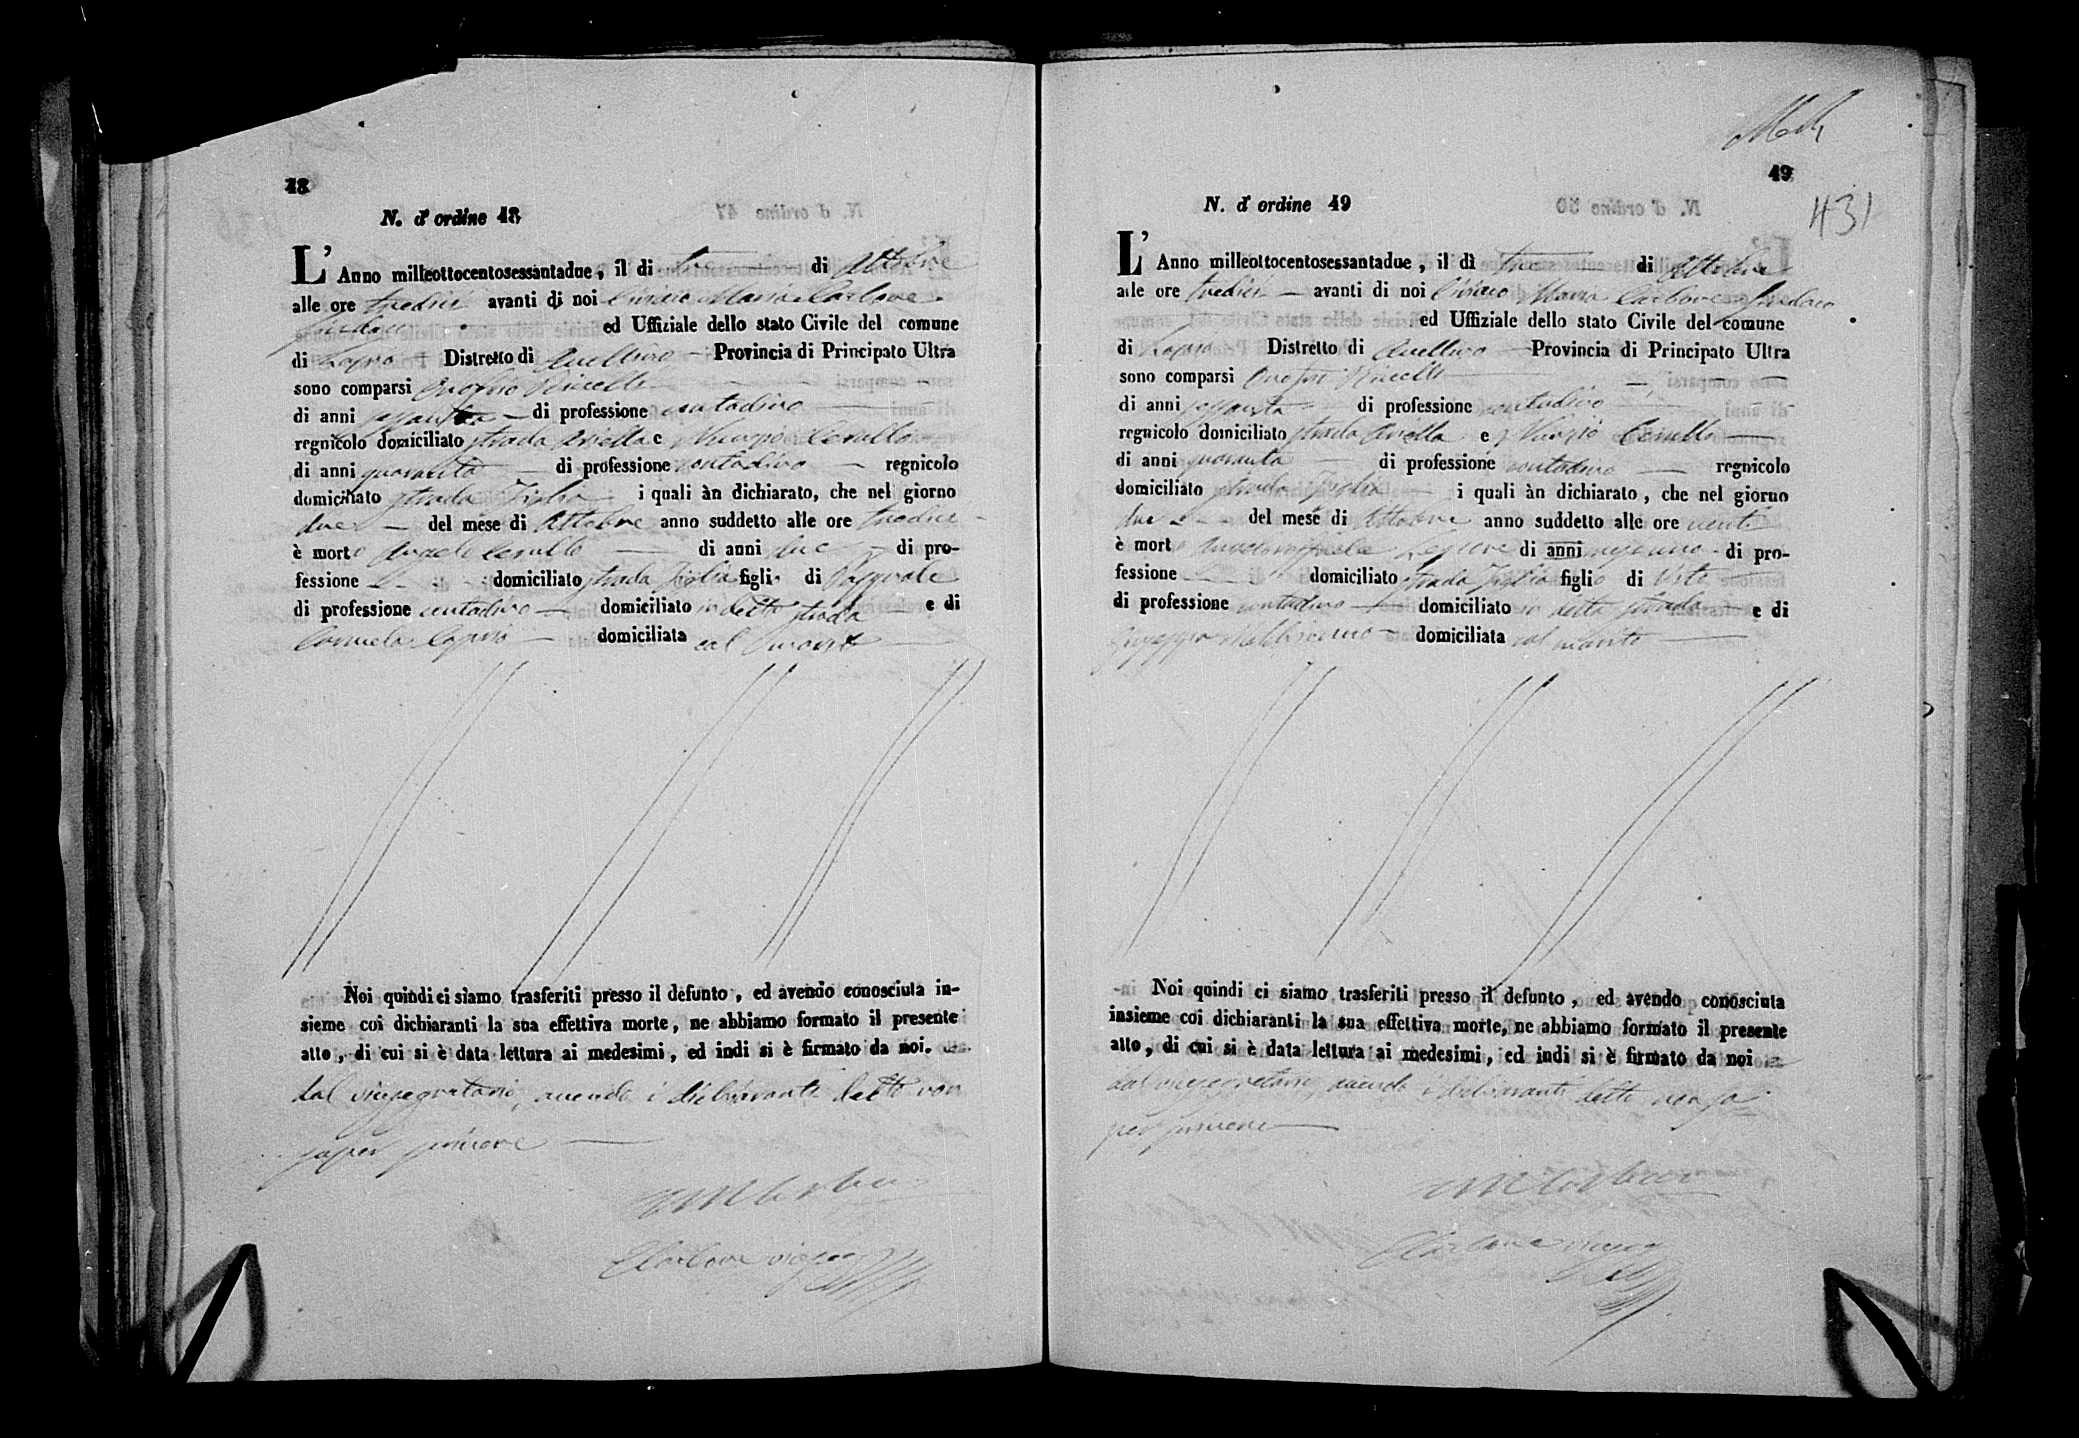 48
N. d' ordine 48
L' Anno milleottocentosessantadue, il dì tre di Ottobre
alle ore tredici avanti di noi Ciriaco Maria Carbone
Sindaco ed Uffiziale dello stato Civile del comune
di Distretto di Avellino Provincia di Principato Ultra
sono comparsi Onofrio
di anni sessanta di professione contadino
regnicolo domiciliato strada e Nunzio Cerullo
di anni quaranta di professione contadino regnicolo
domiciliato strada i quali àn dichiarato, che nel giorno
due del mese di Ottobre anno suddetto alle ore tredici
è morto Angelo Cerullo di anni due di pro-
fessione domiciliato strada figlio di Pasquale
di professione contadino domiciliato in detta strada e di
Carmela domiciliata col marito
Noi quindi ci siamo trasferiti presso il defunto, ed avendo conosciuta in-
sieme coi dichiaranti la sua effettiva morte, ne abbiamo formato il presente
atto, di cui si è data lettura ai medesimi, ed indi si è firmato da noi.
dal vicesegretario, avendo i dichiaranti detto non
saper firmare
Carbone
49
431
N. d' ordine 49
L' Anno milleottocentosessantadue, il dì tre di Ottobre
alle ore tredici avanti di noi Ciriaco Maria Carbone Sindaco
ed Uffiziale dello stato Civile del comune
di Distretto di Avellino Provincia di Principato Ultra
sono comparsi Onofrio
di anni sessanta di professione contadino
regnicolo domiciliato strada e Nunzio Cerullo
di anni quaranta di professione contadino regnicolo
domiciliato strada i quali àn dichiarato, che nel giorno
due del mese di Ottobre anno suddetto alle ore venti
è mort di anni di pro-
fessione domiciliato strada figlio di Vito
di professione contadino domiciliato in detta strada e di
domiciliata col marito
Noi quindi ci siamo trasferiti presso il defunto, ed avendo conosciuta
insieme coi dichiaranti la sua effettiva morte, ne abbiamo formato il presente
atto, di cui si è data lettura ai medesimi, ed indi si è firmato da noi
dal vicesegretario, avendo i dichiaranti detto non sa
per firmare
Carbone